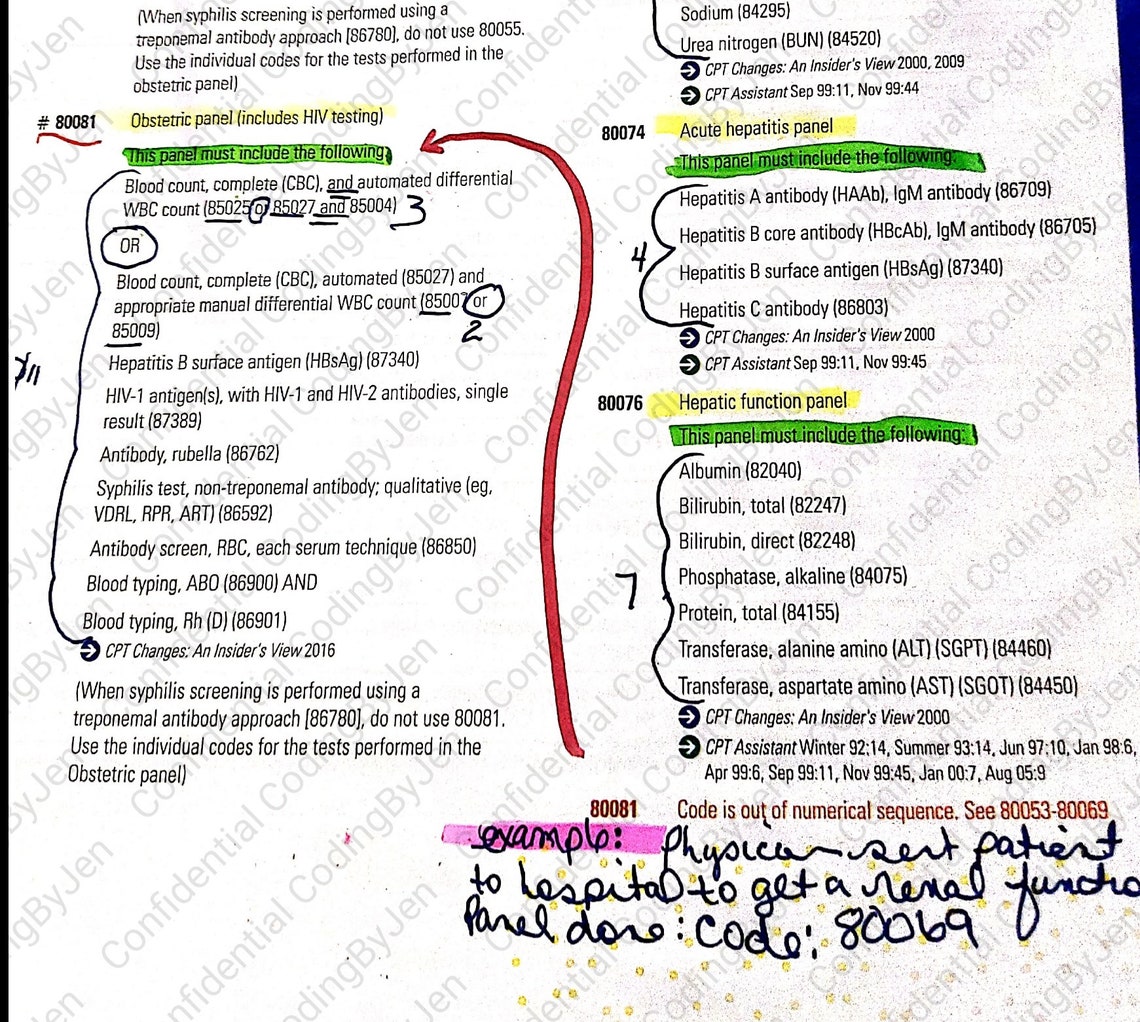 (When syphilis screening is performed using a
treponemal antibody approach [86780], do not use 80055.
Use the individual codes for the tests performed in the
obstetric panel)
# 80081 Obstetric panel (includes HIV testing)
This panel must include the following:
Blood count, complete (CBC), and automated differential
WBC count (85025 or 85027 and 85004) 3
OR
Blood count, complete (CBC), automated (85027) and
appropriate manual differential WBC count (85007 or
85009) 2
Hepatitis B surface antigen (HBsAg) (87340)
HIV-1 antigen(s), with HIV-1 and HIV-2 antibodies, single
result (87389)
Antibody, rubella (86762)
Syphilis test, non-treponemal antibody; qualitative (eg,
VDRL, RPR, ART) (86592)
Antibody screen, RBC, each serum technique (86850)
Blood typing, ABO (86900) AND
Blood typing, Rh (D) (86901)
CPT Changes: An Insider's View 2016
(When syphilis screening is performed using a
treponemal antibody approach [86780], do not use 80081.
Use the individual codes for the tests performed in the
Obstetric panel)
Sodium (84295)
Urea nitrogen (BUN) (84520)
CPT Changes: An Insider's View 2000, 2009
CPT Assistant Sep 99:11, Nov 99:44
80074 Acute hepatitis panel
This panel must include the following:
Hepatitis A antibody (HAAb), IgM antibody (86709)
Hepatitis B core antibody (HBcAb), IgM antibody (86705)
4
Hepatitis B surface antigen (HBsAg) (87340)
Hepatitis C antibody (86803)
CPT Changes: An Insider's View 2000
CPT Assistant Sep 99:11, Nov 99:45
80076 Hepatic function panel
This panel must include the following:
Albumin (82040)
Bilirubin, total (82247)
Bilirubin, direct (82248)
7 Phosphatase, alkaline (84075)
Protein, total (84155)
Transferase, alanine amino (ALT) (SGPT) (84460)
Transferase, aspartate amino (AST) (SGOT) (84450)
CPT Changes: An Insider's View 2000
CPT Assistant Winter 92:14, Summer 93:14, Jun 97:10, Jan 98:6,
Apr 99:6, Sep 99:11, Nov 99:45, Jan 00:7, Aug 05:9
80081 Code is out of numerical sequence. See 80053-80069
example: Physician sent patient
to hospital to get a renal functio
Panel done: Code: 80069
Confidential CodingByJen